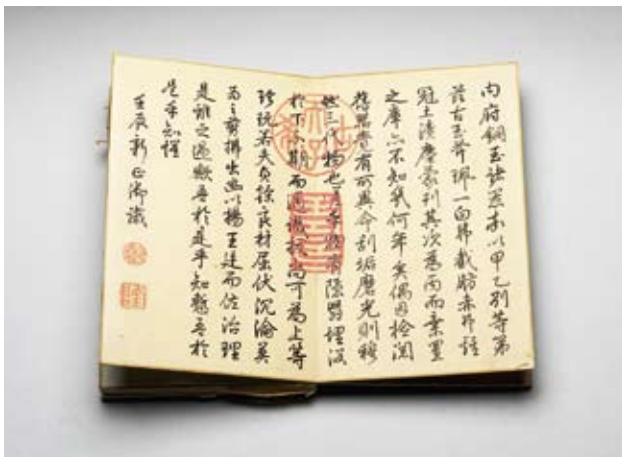 內府銅玉諸器以甲乙別等第
茲古玉斧珮一白弗截肪赤弗
冠土漬塵蒙列其次為丙而棄置
之庫亦不知幾何年矣偶因檢閱
有所異命刮垢磨光則穆
然三代物也隱翳埋沒
於下不期而遇識拔尚可為上等
珍玩若夫貞良材屈伏沉淪莫
為之剪拂出幽以揚王廷而佐治理
是誰之過歟吾於是乎知慙吾於
是乎知懼
壬辰新正御識